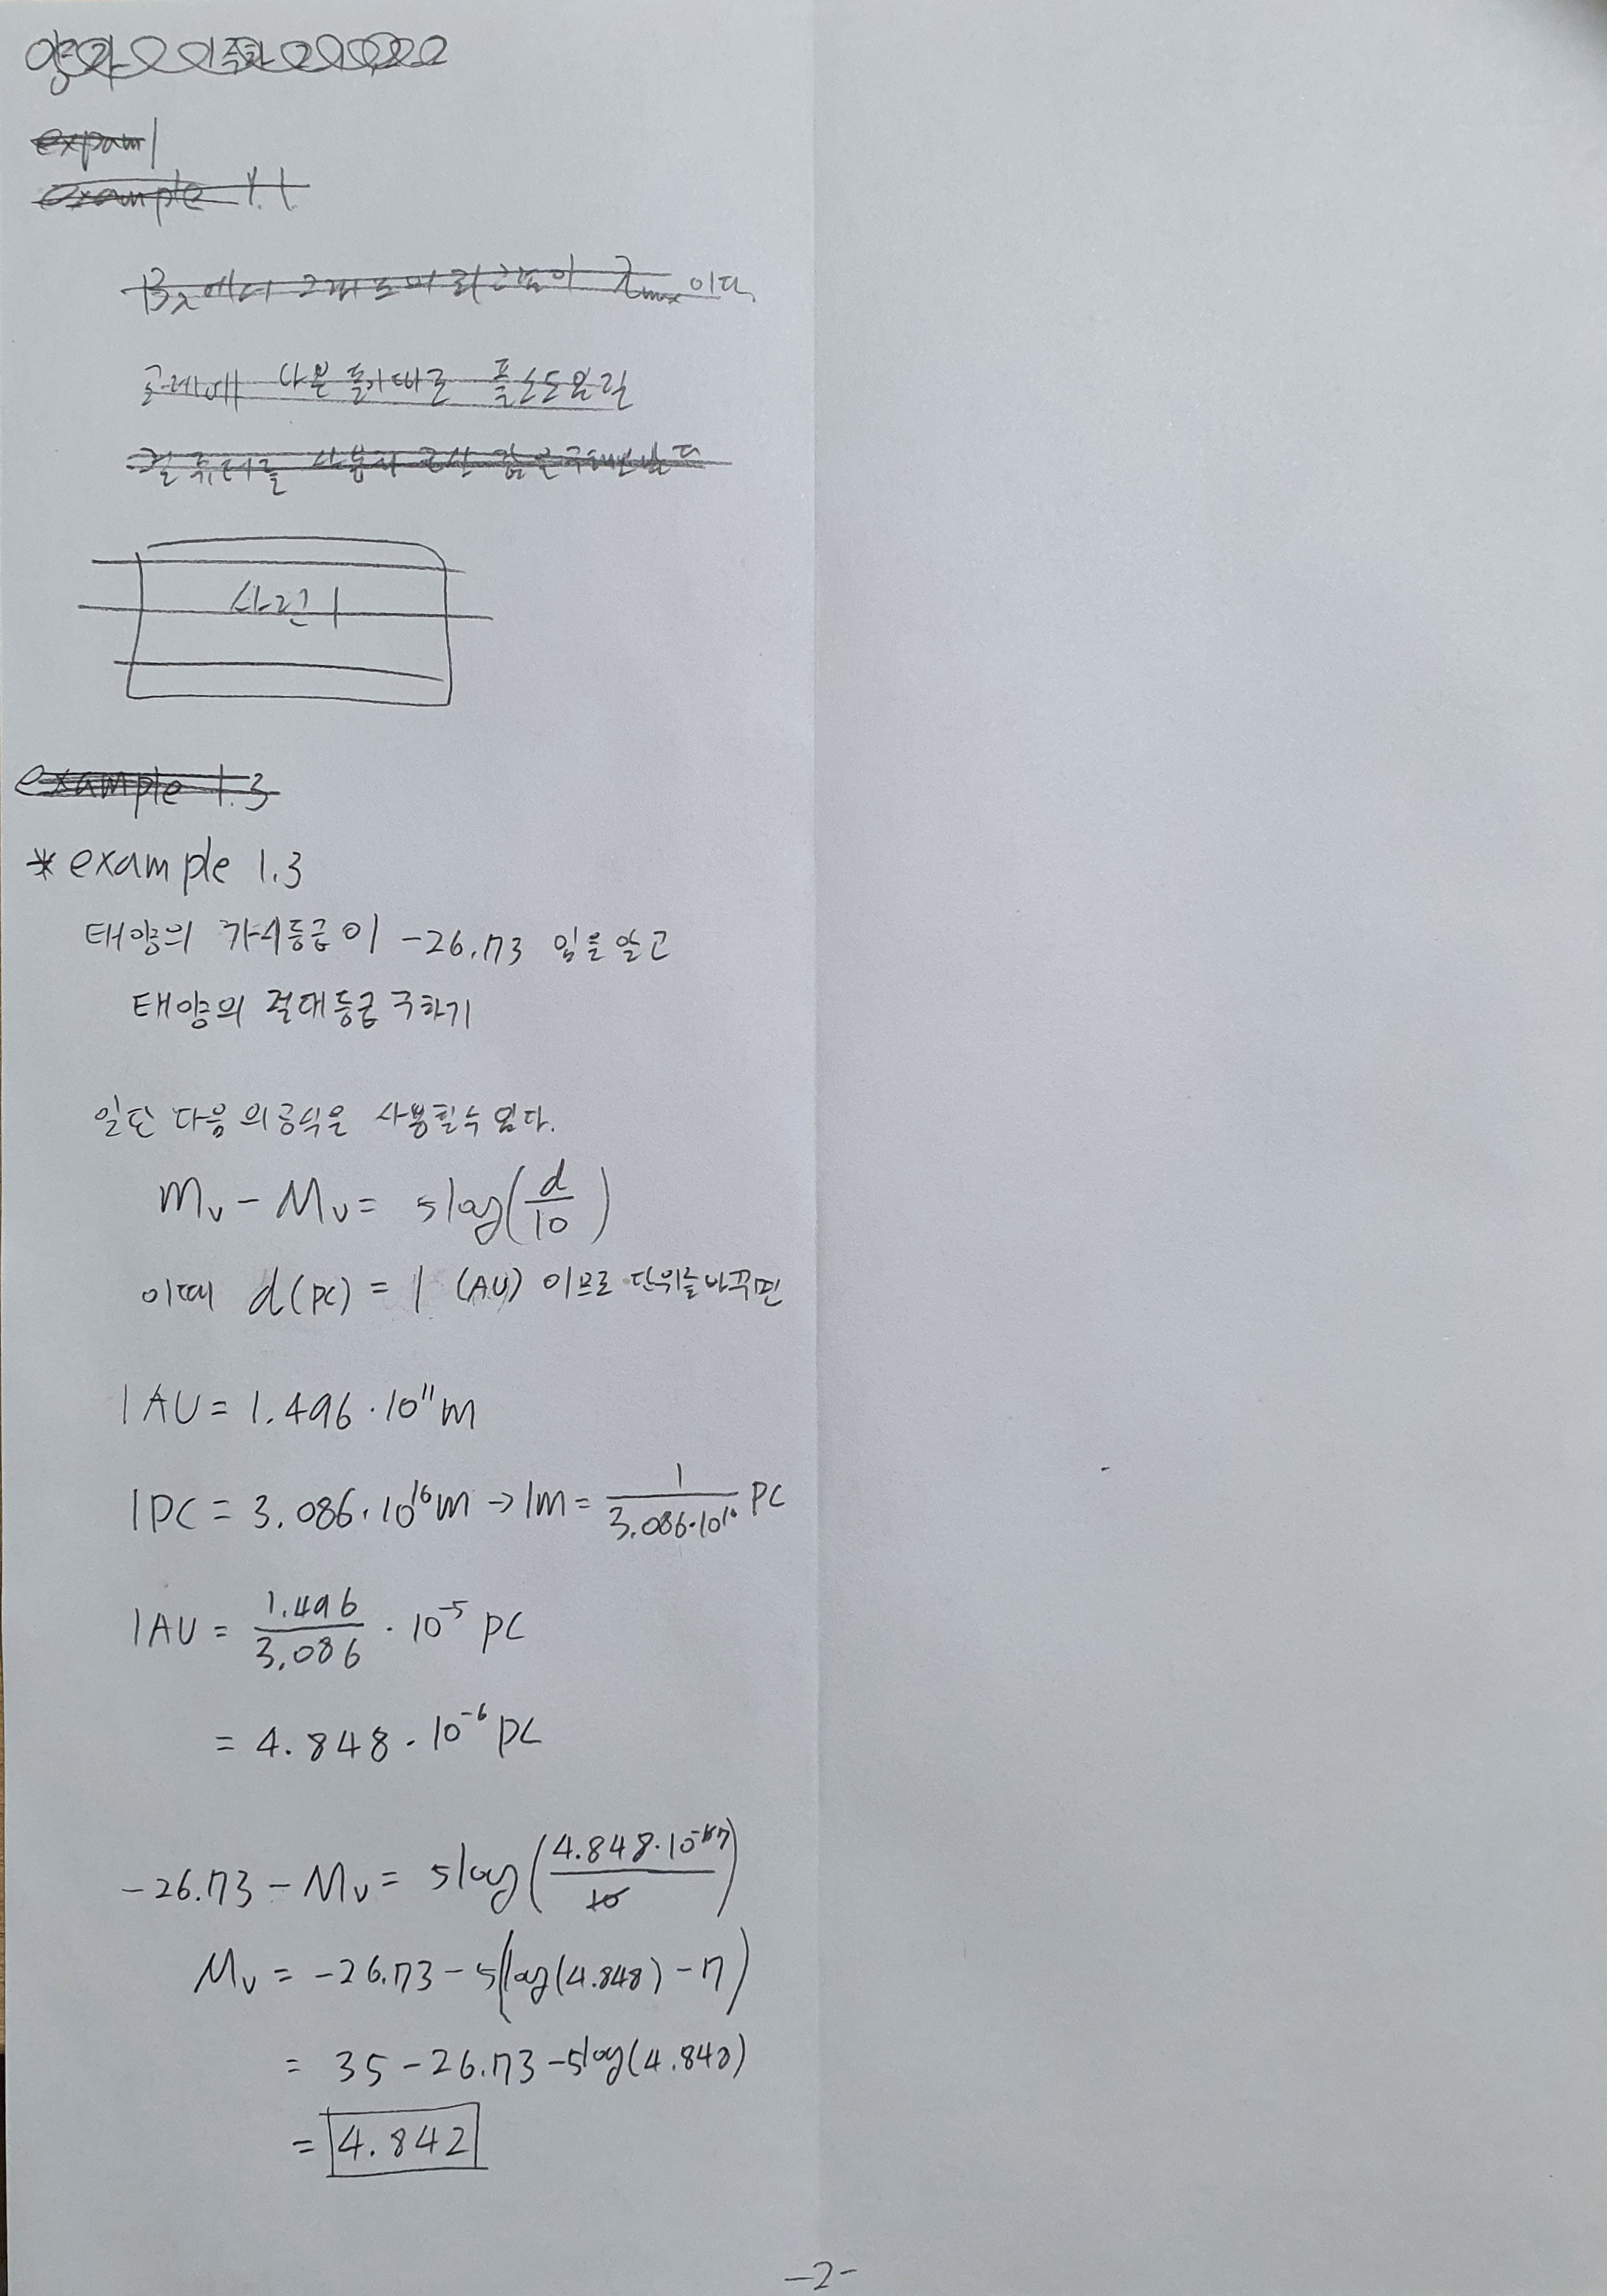 example 1.1
Bλ에서 λmax 이다.
사진 1
example 1.3
* example 1.3
태양의 겉보기등급이 -26.73 임을 알고
태양의 절대등급 구하기
일단 다음의 공식은 사용할수 있다.
mv - Mv = 5log(d/10)
이때 d(pc) = 1 (AU) 이므로 단위를 바꾸면
1AU = 1.496·10¹¹m
1PC = 3.086·10¹⁶m → 1m = 1/3.086·10¹⁶ PC
1AU = 1.496/3.086 · 10⁻⁵ pc
= 4.848·10⁻⁶ pc
-26.73 - Mv = 5log(4.848·10⁻⁷/10)
Mv = -26.73 - 5(log(4.848) - 7)
= 35 - 26.73 - 5log(4.848)
= 4.842
-2-